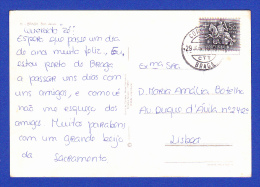 Querido Zé
Espero que passes um dia
de anos muito feliz. Eu
estou perto de Braga
a passar uns dias com
uns amigos, e como é
não me esqueço dos
amigos. Muitos parabéns
com um grande beijo
da Sacramento
Exma Srª
D. Maria Amália Botelho
Av. Duque d'Ávila nº
Lisboa
BRAGA